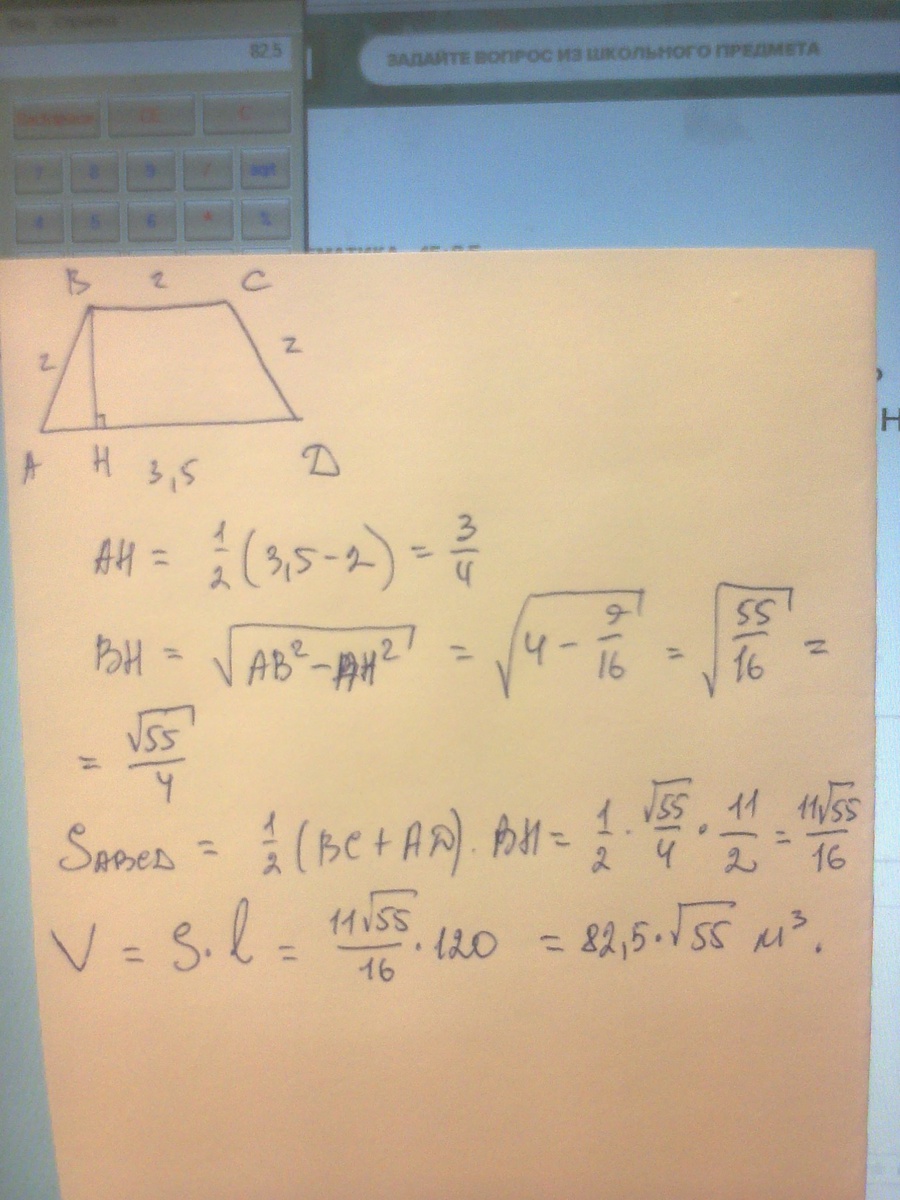 82,5
ЗАДАЙТЕ ВОПРОС ИЗ ШКОЛЬНОГО ПРЕДМЕТА
Backspace CE C
7 8 9 / sqrt
4 5 6 * %
B 2 C
2 2
A H 3,5 D
AH = 1/2 (3,5-2) = 3/4
BH = √(AB²-AH²) = √(4 - 9/16) = √(55/16) =
= √55/4
S_ABCD = 1/2 (BC + AD) · BH = 1/2 · √55/4 · 11/2 = 11√55/16
V = S·l = 11√55/16 · 120 = 82,5·√55 м³.